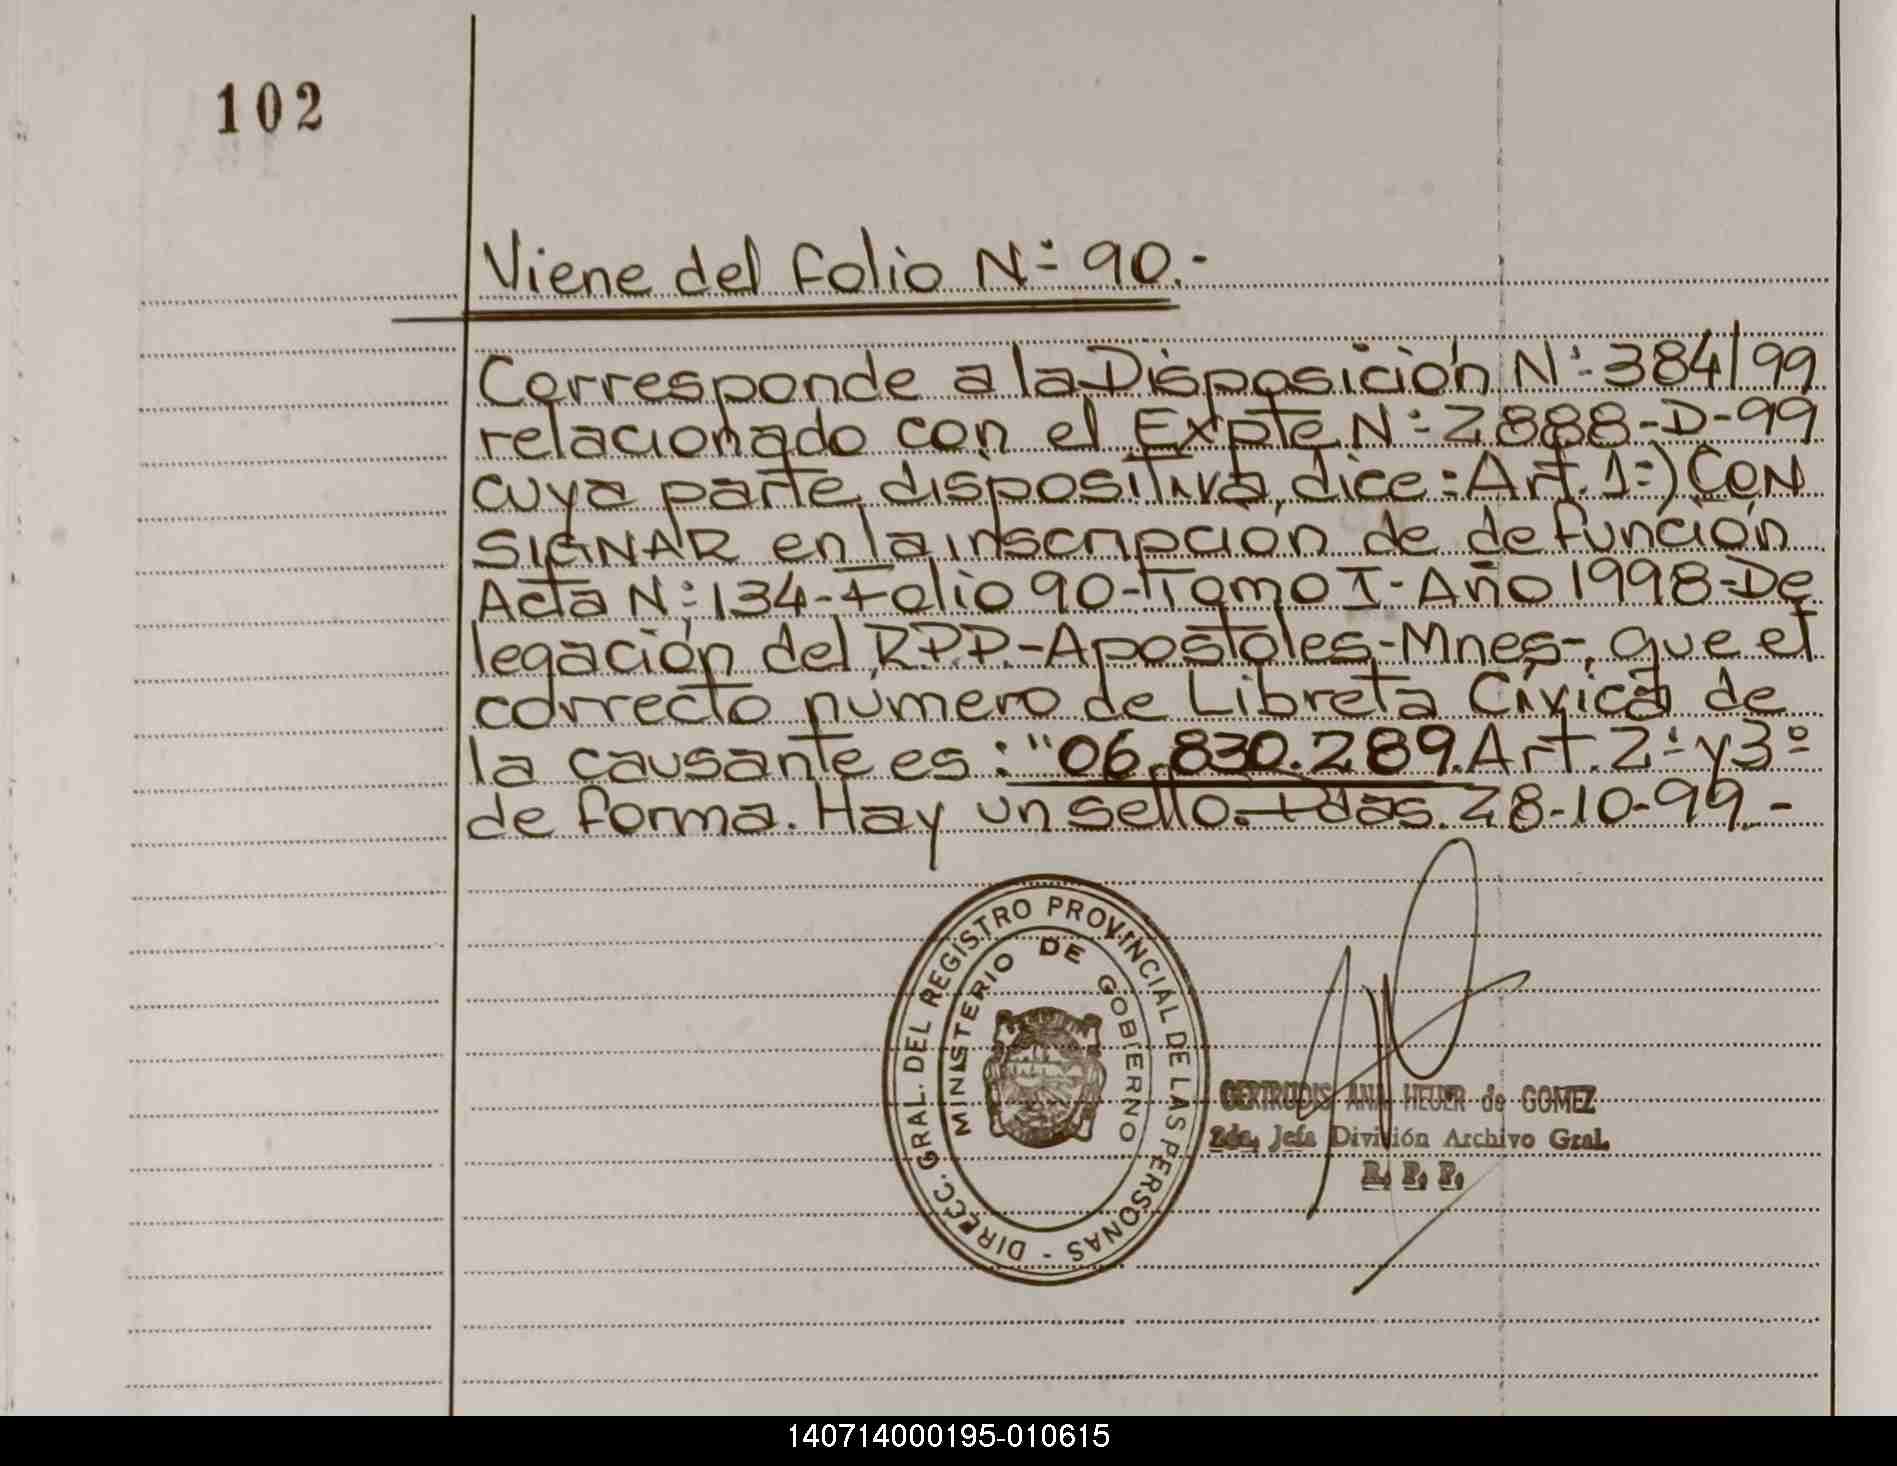 102
Viene del folio Nº 90.-
Corresponde a la Disposición Nº 384/99
relacionado con el Expte Nº 2888-D-99
cuya parte dispositiva, dice: Art. 1º) CON
SIGNAR en la inscripción de defunción
Acta Nº 134-Folio 90-Tomo I-Año 1998-De
legación del R.P.P.-Apostoles-Mnes-, que el
correcto número de Libreta Cívica de
la causante es: "06.830.289. Art. 2º y 3º
de forma. Hay un sello. Pdas. 28-10-99.-
DIRECC. GRAL. DEL REGISTRO PROVINCIAL DE LAS PERSONAS -
MINISTERIO DE GOBIERNO
GERTRUDIS ANA HEUER de GOMEZ
2da. Jefa División Archivo Gral.
R. P. P.
140714000195-010615